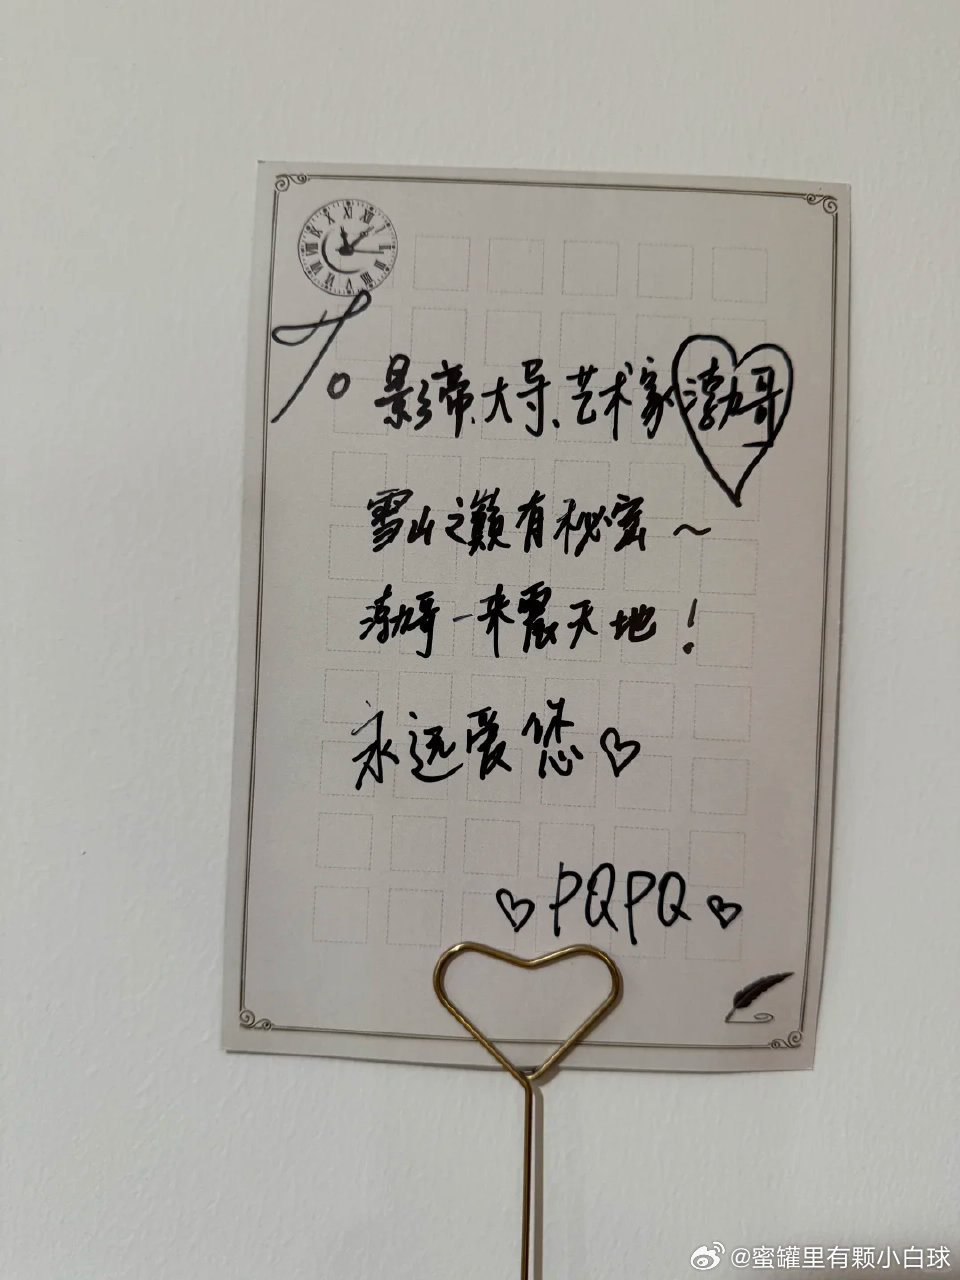 To 影帝、大导、艺术家渤哥
雪山之巅有秘密~
渤哥一来震天地！
永远爱您♡
♡PQPQ♡
@蜜罐里有颗小白球